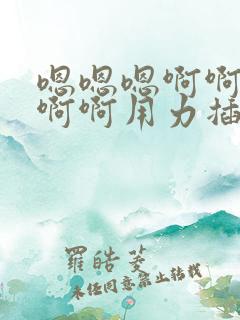 嗯嗯嗯啊啊
啊啊用力插
羅皓菱
未任同意禁止转载